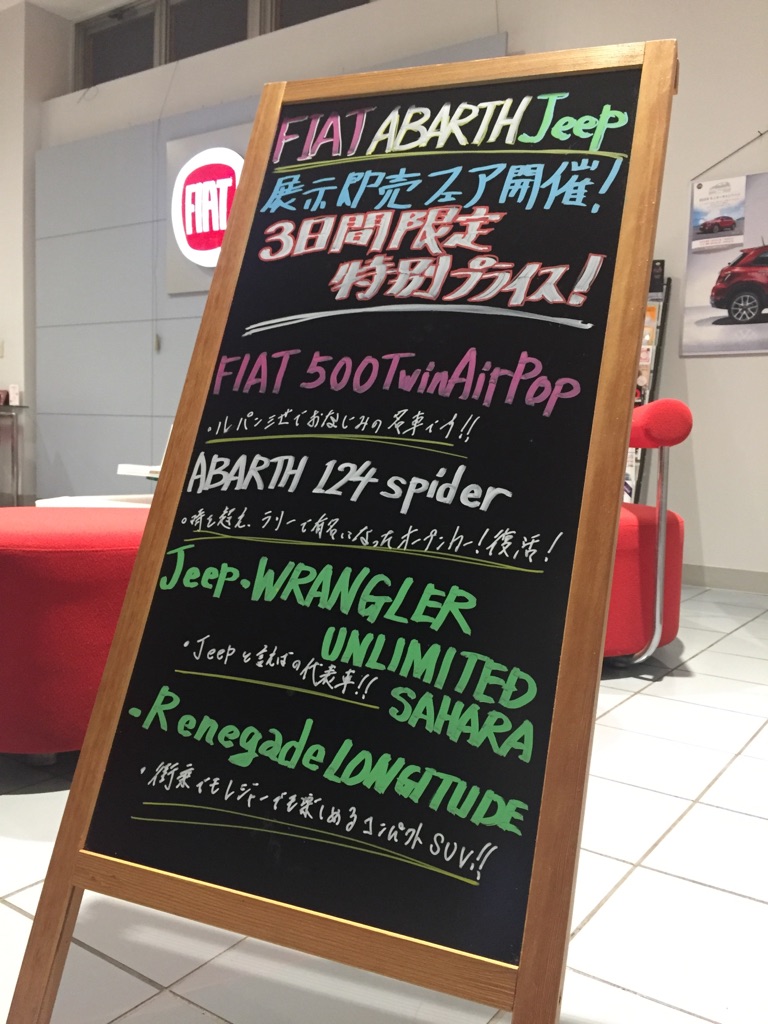 FIAT ABARTH Jeep
展示即売フェア開催!
3日間限定
特別プライス!
FIAT 500 TwinAirPop
・ルパン三世でおなじみの名車です!!
ABARTH 124 spider
・時を超え、ラリーで有名になったオープンカー!復活!
Jeep・WRANGLER
UNLIMITED
SAHARA
・Jeepと言えばの代表車!!
・Renegade LONGITUDE
・街乗りでもレジャーでも楽しめるコンパクトSUV!!
FIAT